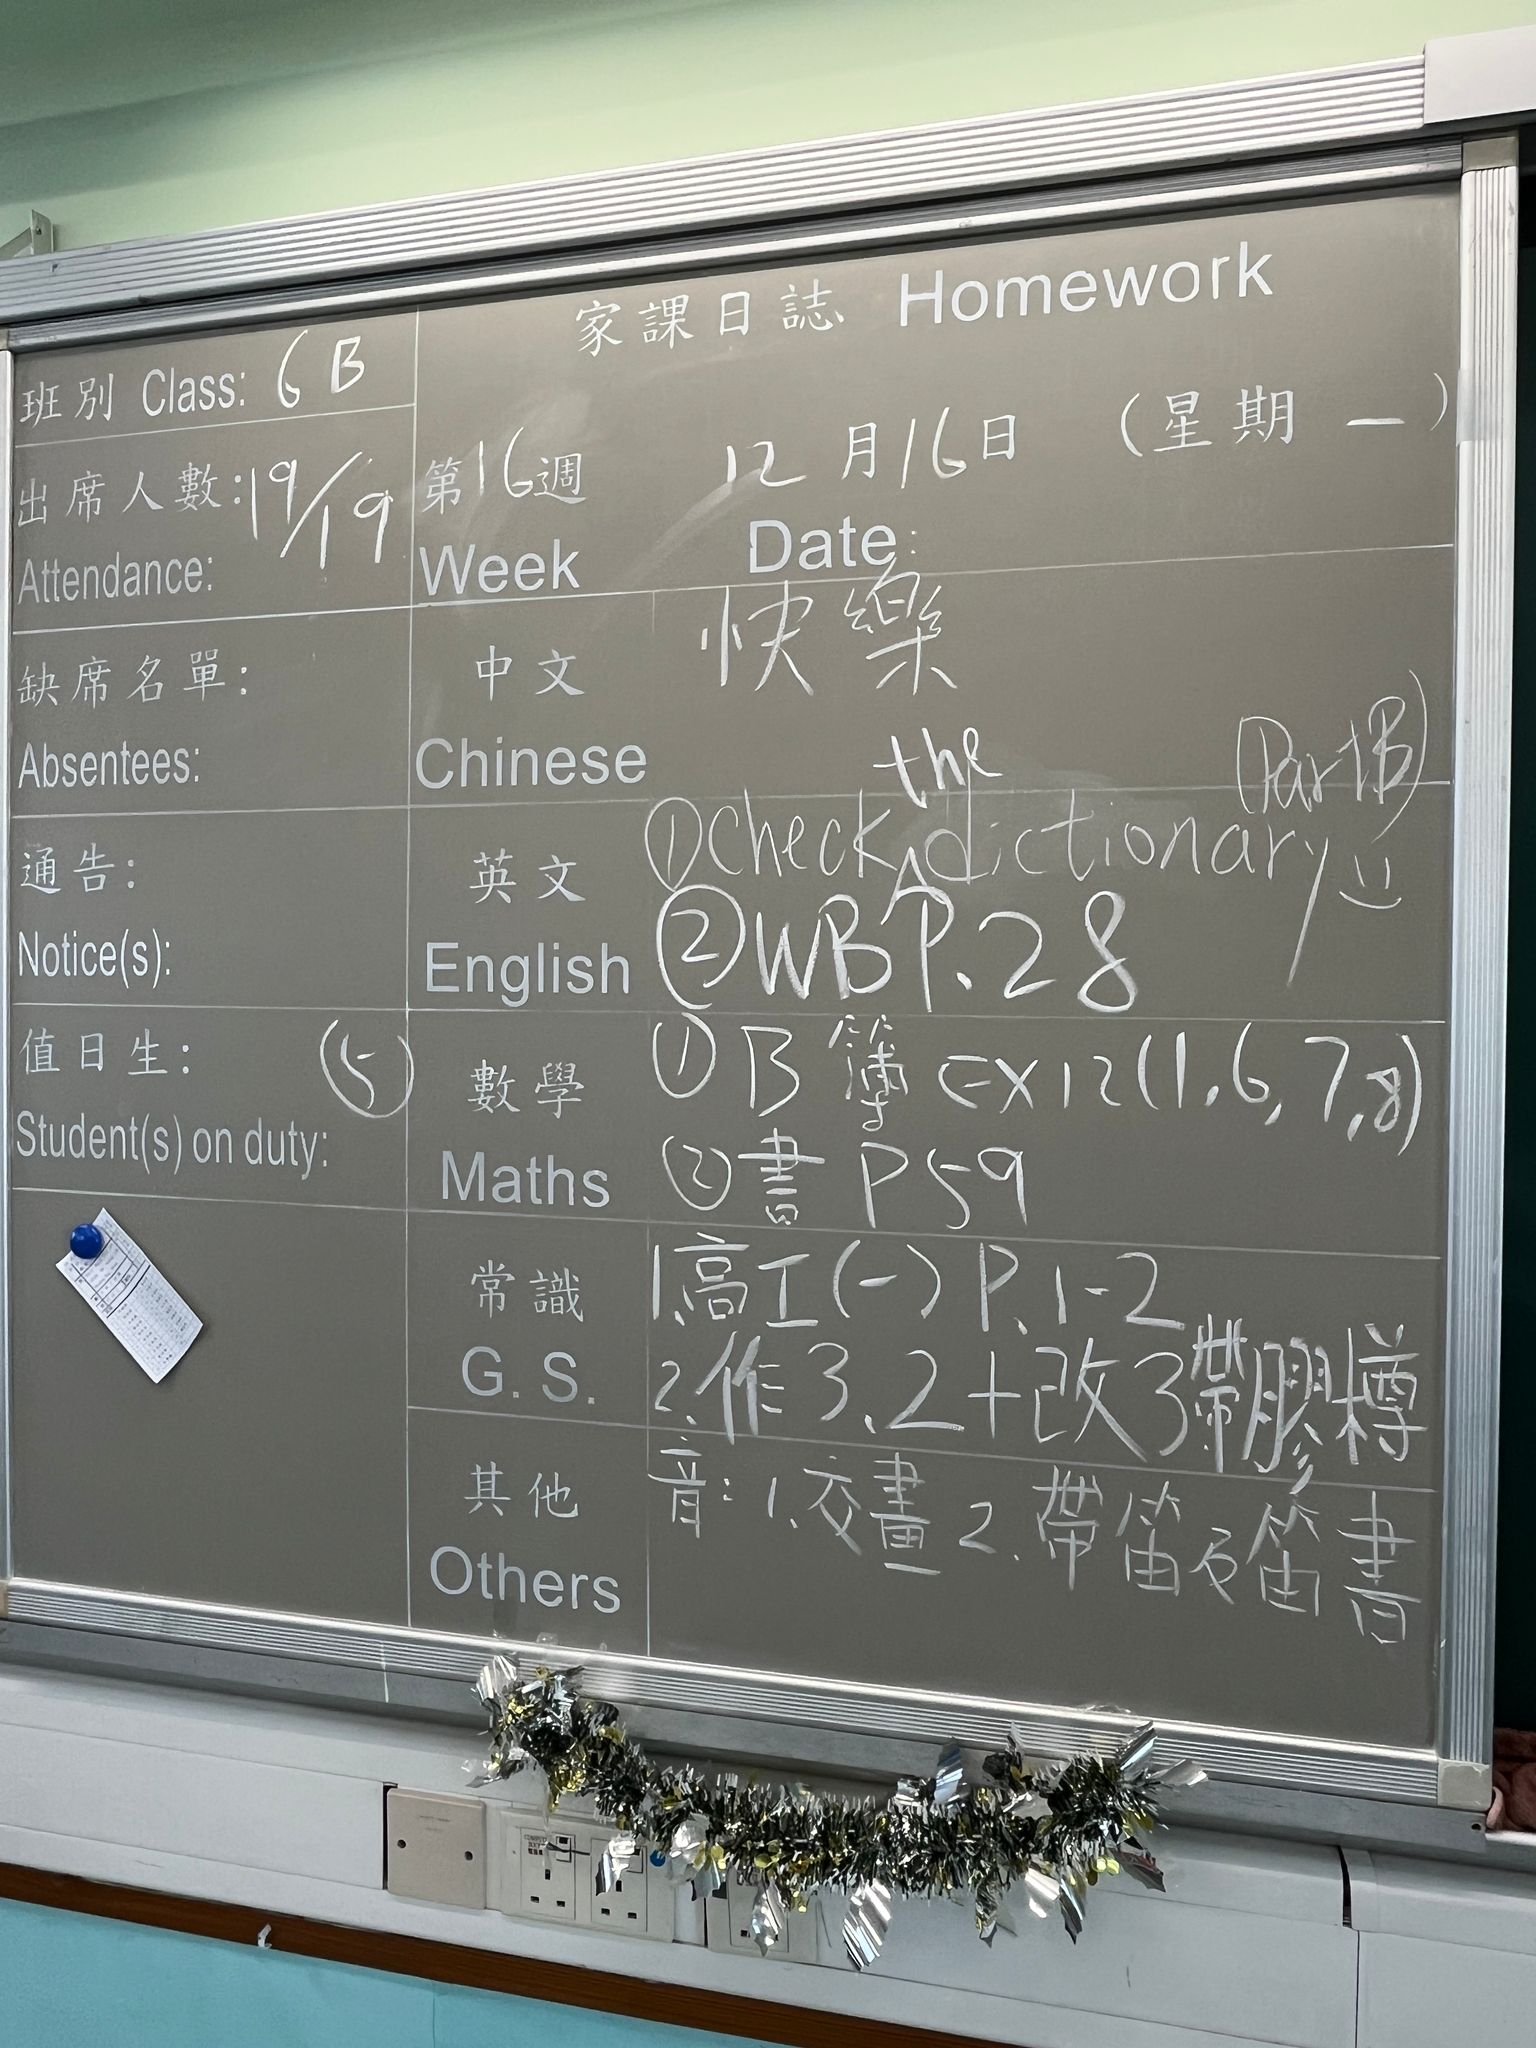 家課日誌 Homework
班別 Class: 6B
出席人數: 19/19
Attendance:
第16週
Week
12月16日 (星期一)
Date:
缺席名單:
Absentees:
中文
Chinese
快樂
通告:
Notice(s):
英文
English
①check the dictionary (Part B)
②WB P.28
值日生: (5)
Student(s) on duty:
數學
Maths
①B簿 Ex12(1,6,7,8)
②書 P59
常識
G. S.
1.高工(一) P.1-2
2.作3.2+改3帶膠樽
其他
Others
音: 1.交畫 2.帶笛及笛書